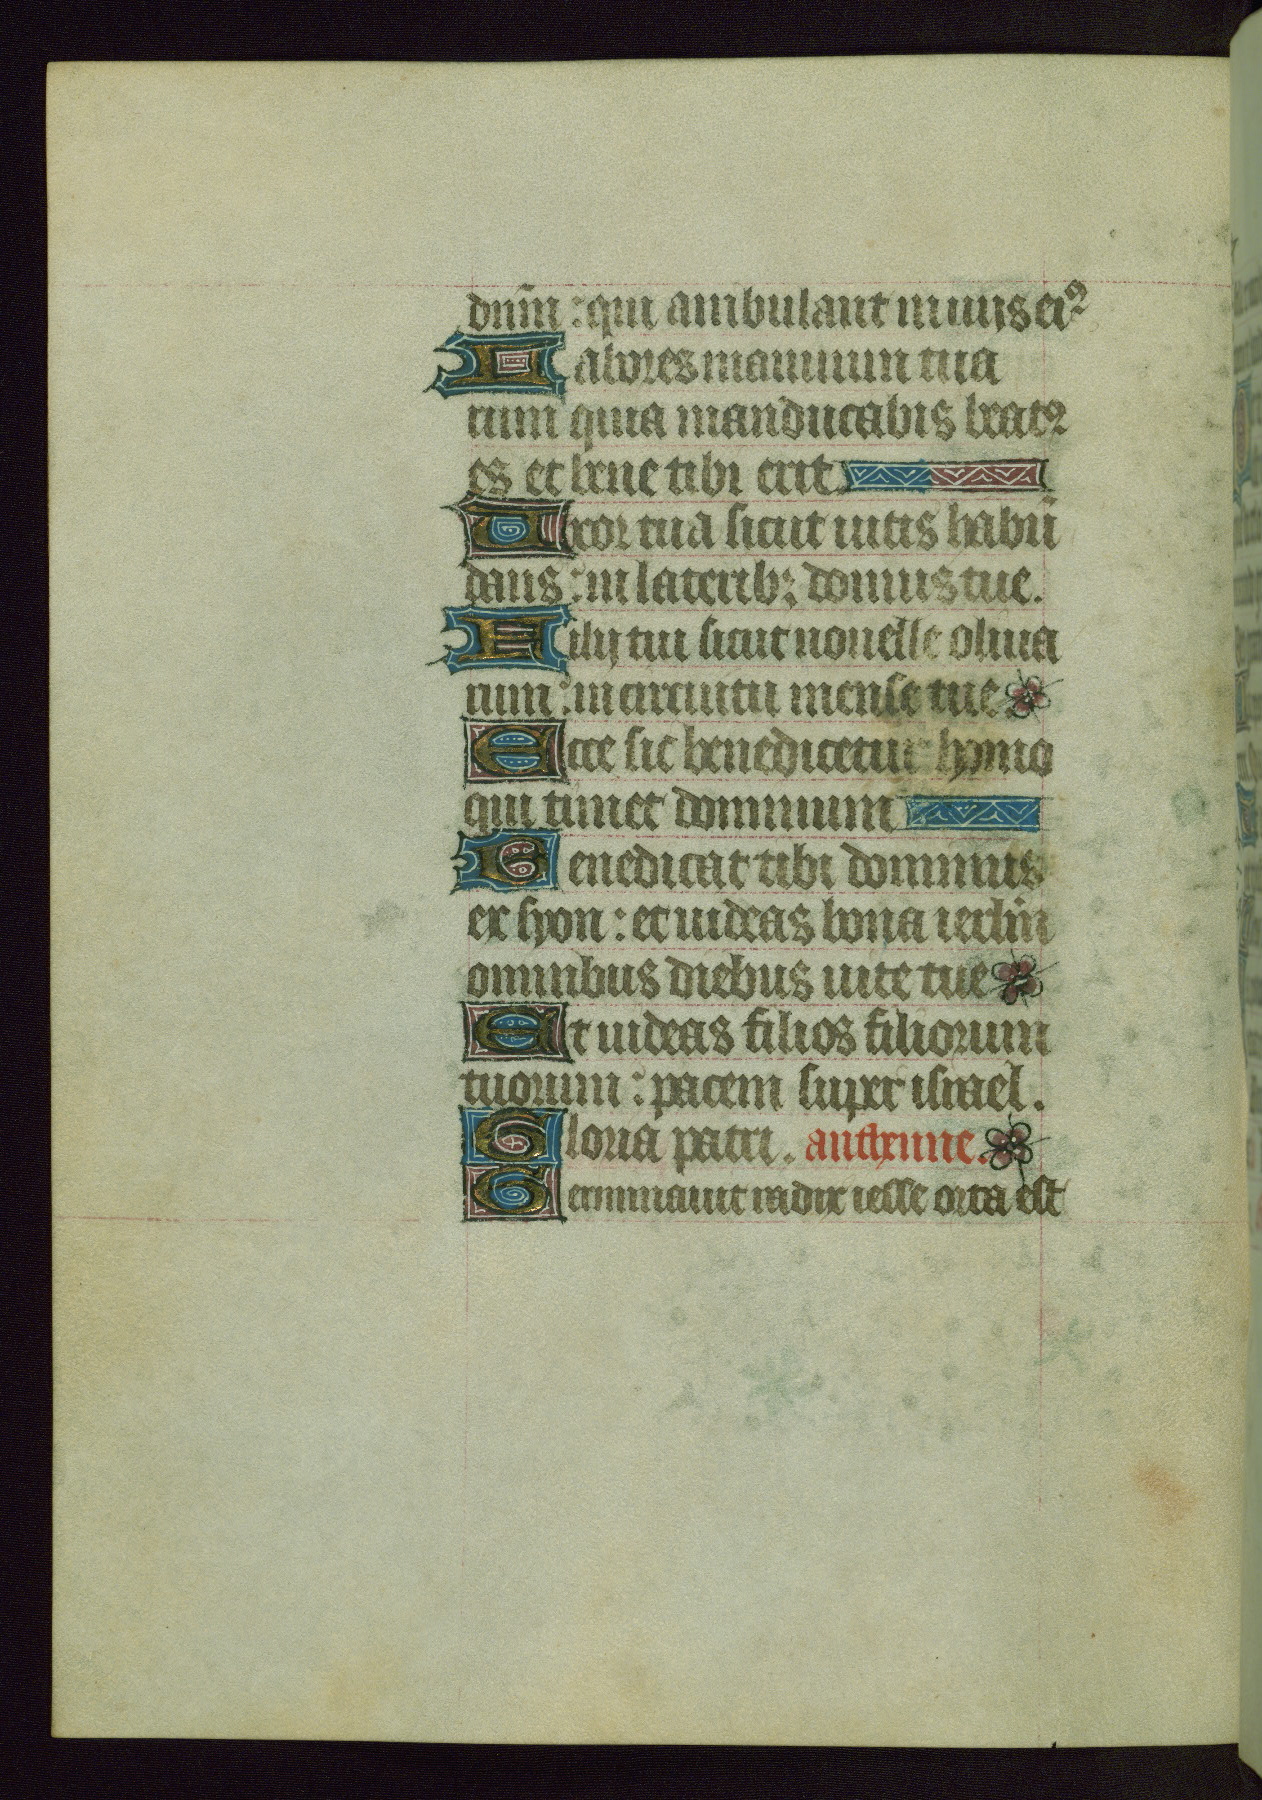 dnm̄ : qui ambulant in uijs eiꝰ
Labores manuum tua
rum quia manducabis beatꝰ
es et bene tibi erit.
Uxor tua sicut uitis habū
dans : in laterib; domus tue.
Filij tui sicut nouelle oliua
rum : in circuitu mense tue
Ecce sic benedicetur homo
qui timet dominum
Benedicat tibi dominus
ex syon : et uideas bona ierlm̄
omnibus diebus uite tue
Et uideas filios filiorum
tuorum : pacem super israel.
Gloria patri. antheune.
Germinauit radix iesse orta est